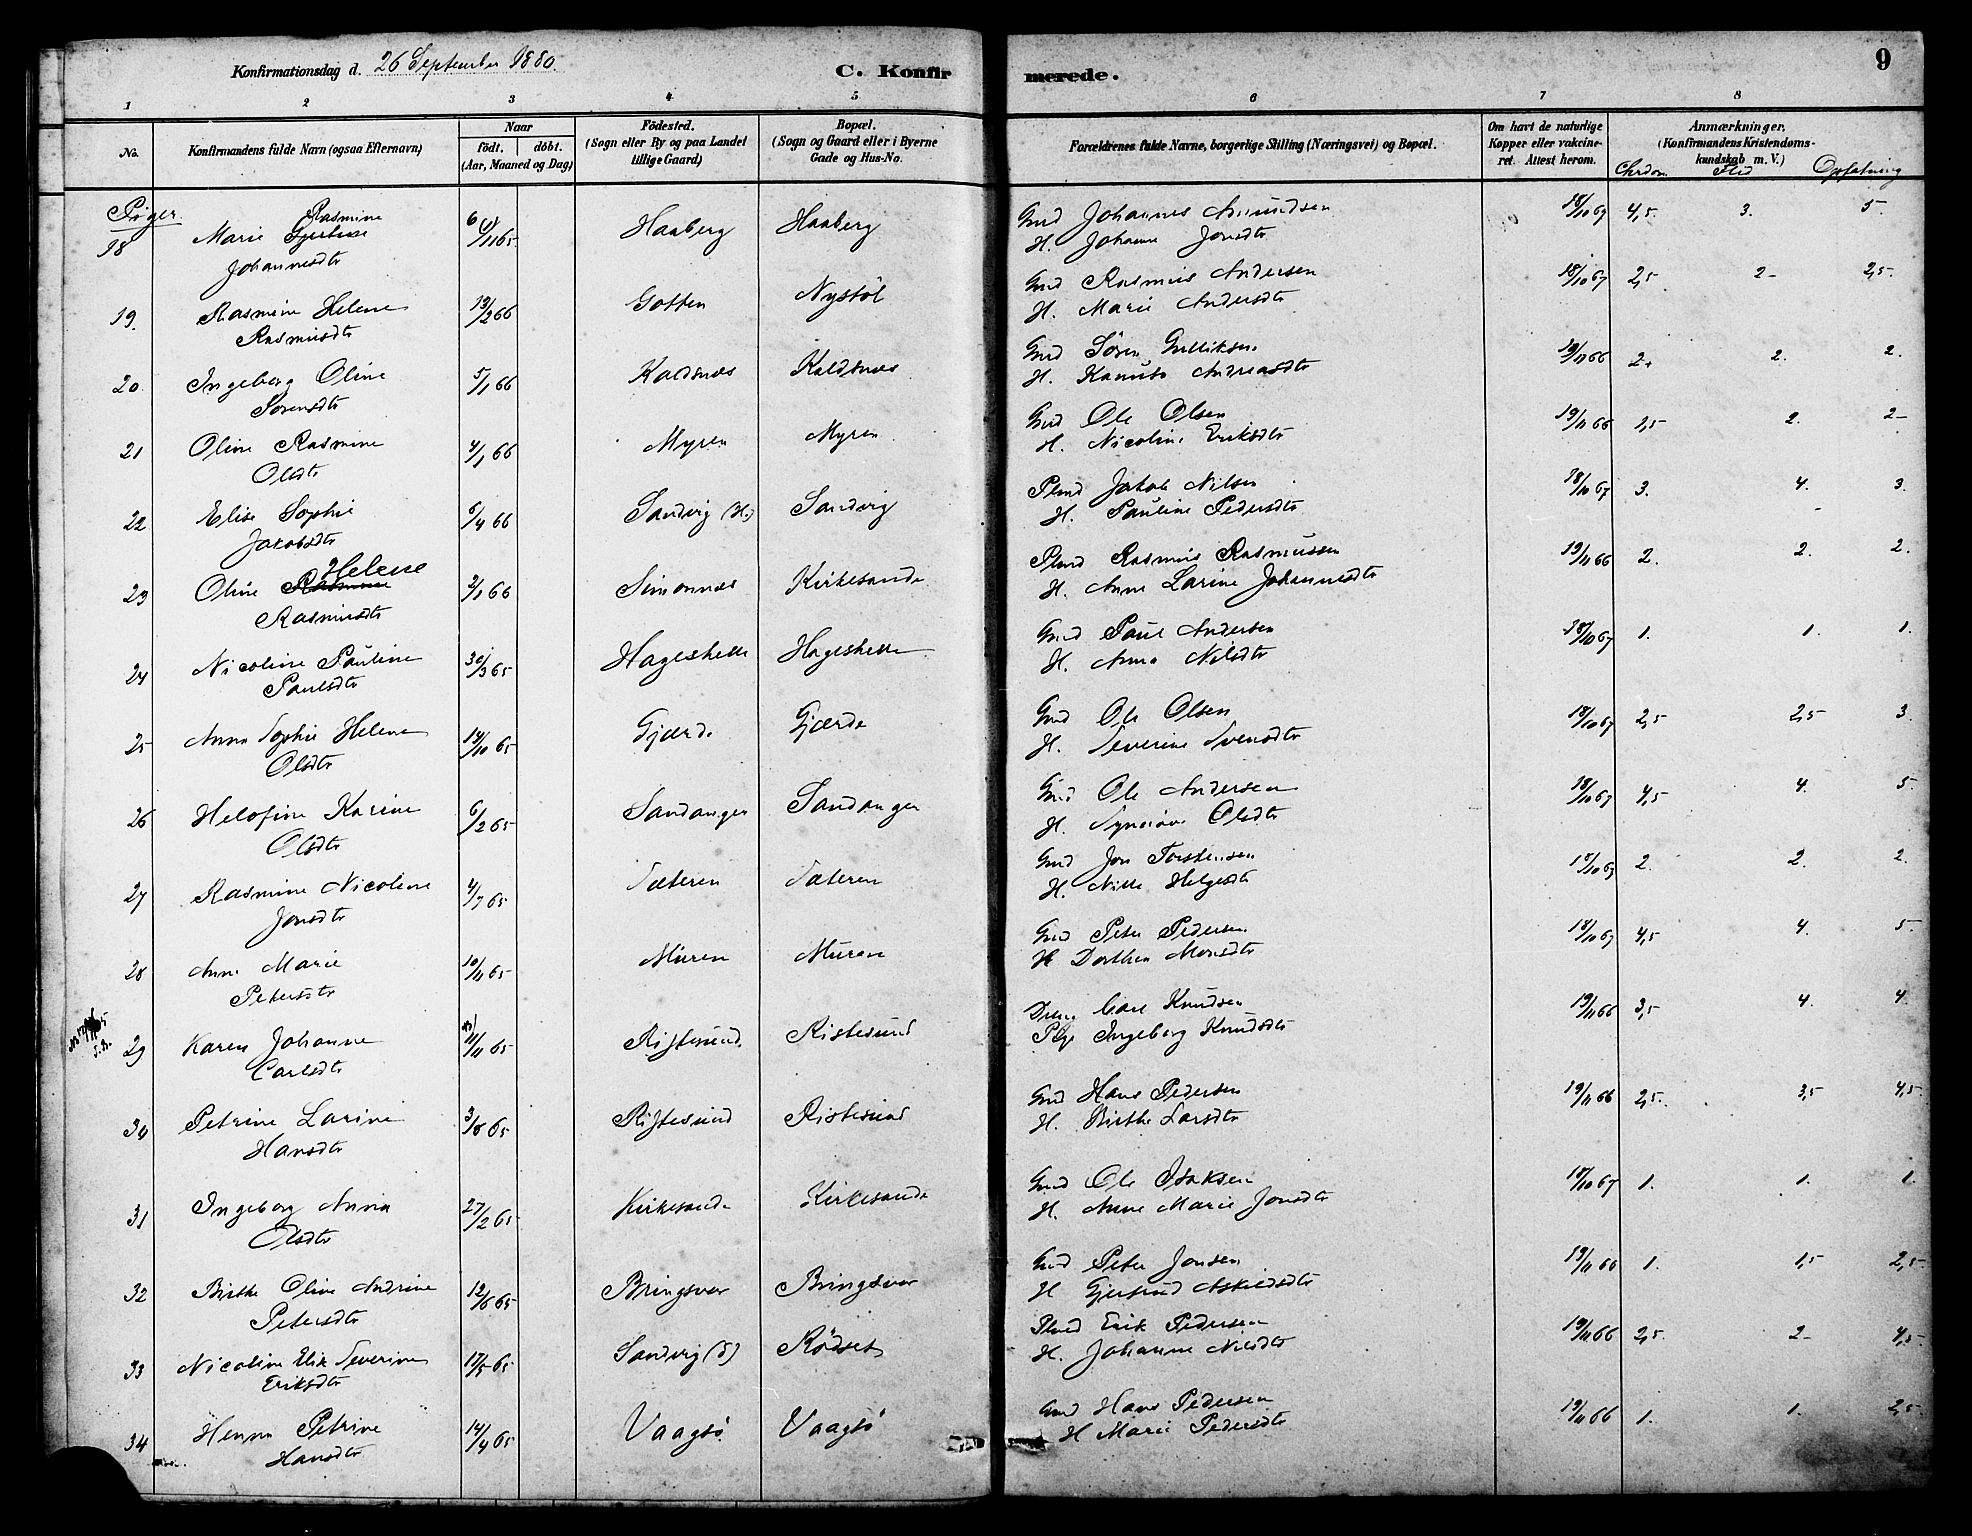 Konfirmationsdag d. 26 September 1880.
C. Konfirmerede.
9
1 2 3 4 5 6 7 8
No.
Konfirmandens fulde Navn (ogsaa Efternavn)
Naar
födt. döbt.
(Aar, Maaned og Dag)
Födested.
(Sogn eller By og paa Landet
tillige Gaard)
Bopæl.
(Sogn og Gaard eller i Byerne
Gade og Hus-No.
Forældrenes fulde Navne, borgerlige Stilling (Næringsvei) og Bopæl.
Om havt de naturlige
Kopper eller vakcine-
ret. Attest herom.
Anmærkninger.
(Konfirmandens Kristendoms-
kundskab m. V.)
Chrdom Flid Opfatning
Piger
Rasmine
18 Marie 6/11 65 Haaberg Haaberg Gmd Johannes Amundsen 18/10 67 4,5. 3. 5.
Johannesdtr H. Johanne Jonsdtr
19. Rasmine Helene 19/2 66 Gotten Nystöl Gmd Rasmus Andersen 18/10 67 2,5 2- 2,5.
Rasmusdtr H. Marie Andersdtr
20 Ingeborg Oline 5/1 66 Koldsnæs Koldsnæs Gmd Sören Gulliksen 19/11 66 2. 2. 2.
Sörensdtr H. Andreasdtr
21 Oline Rasmine 4/1 66 Myren Myren Gmd Ole Olsen 19/11 66 1,5 2. 2-
Olsdtr H. Nicoline Eriksdtr
22 Elise Sophie 6/4 66 Sandvig (H.) Sandvig Plmd Jakob Nilsen 18/10 67 3. 4. 3.
Jakobsdtr H. Pauline Pedersdtr
Helene
23 Oline Rasmine 2/1 66 Simonnæs Kirkesande Plmd Rasmus Rasmussen 19/11 66 2. 2. 2.
Rasmusdtr H. Anne Larine Johannesdtr
24 Nicoline Pauline 30/3 65 Hageskelle Hageskelle Gmd Paul Andersen 18/10 67 1. 1. 1.
Paulsdtr H. Anna Nilsdtr
25 Anna Sophie Helene 14/10 65 Gjærde Gjærde Gmd Ole Olsen 18/10 67 2,5 2,5 3.
Olsdtr H. Severine Svensdtr
26 Helofine Karine 6/2 65 Sandanger Sandanger Gmd Ole Andersen 18/10 67 4,5 4. 5
Olsdtr H. Synnöve Olsdtr
27 Rasmine Nicoline 4/7 65 Sæteren Sæteren Gmd Jon Torstensen 18/10 67 2. 2. 2.
Jonsdtr H. Nille Helgesdtr
28 Anne Marie 10/11 65 Muren Muren Gmd Peter Pedersen 18/10 67 4,5 4. 5-
Petersdtr H Dorthea Monsdtr
29 Karen Johanne 11/11 65 Ristesund Ristesund Carl Knudsen 19/11 66 3,5 4. 4.
Carlsdtr Pige Ingeborg Knudsdtr
30 Petrine Larine 3/8 65 Ristesund Ristesund Gmd Hans Pedersen 19/11 66 2,5. 3,5 4,5.
Hansdtr H. Birthe Larsdtr
31 Ingeborg Anna 27/2 65 Kirkesande Kirkesande Gmd Ole Isaksen 18/10 67 1. 1. 1.
Olsdtr H. Anne Marie Jonsdtr
32 Birthe Oline Andrine 12/6 65 Bringsvor Bringsvor Gmd Peter Jonsen 19/11 66 1. 1,5 2,5-
Petersdtr H Gjertrud Askildsdtr
33 Nicoline Elise Severine 17/5 65 Sandvig (S) Rödset Plmd Erik Pedersen 19/11 66 2,5. 2- 4,5-
Eriksdtr H. Johanne Nilsdtr
34 Henna Petrine 14/4 65 Vaagsö Vaagsö Gmd Hans Pedersen 19/11 66 1. 1. 2,5.
Hansdtr H Marie Pedersdtr